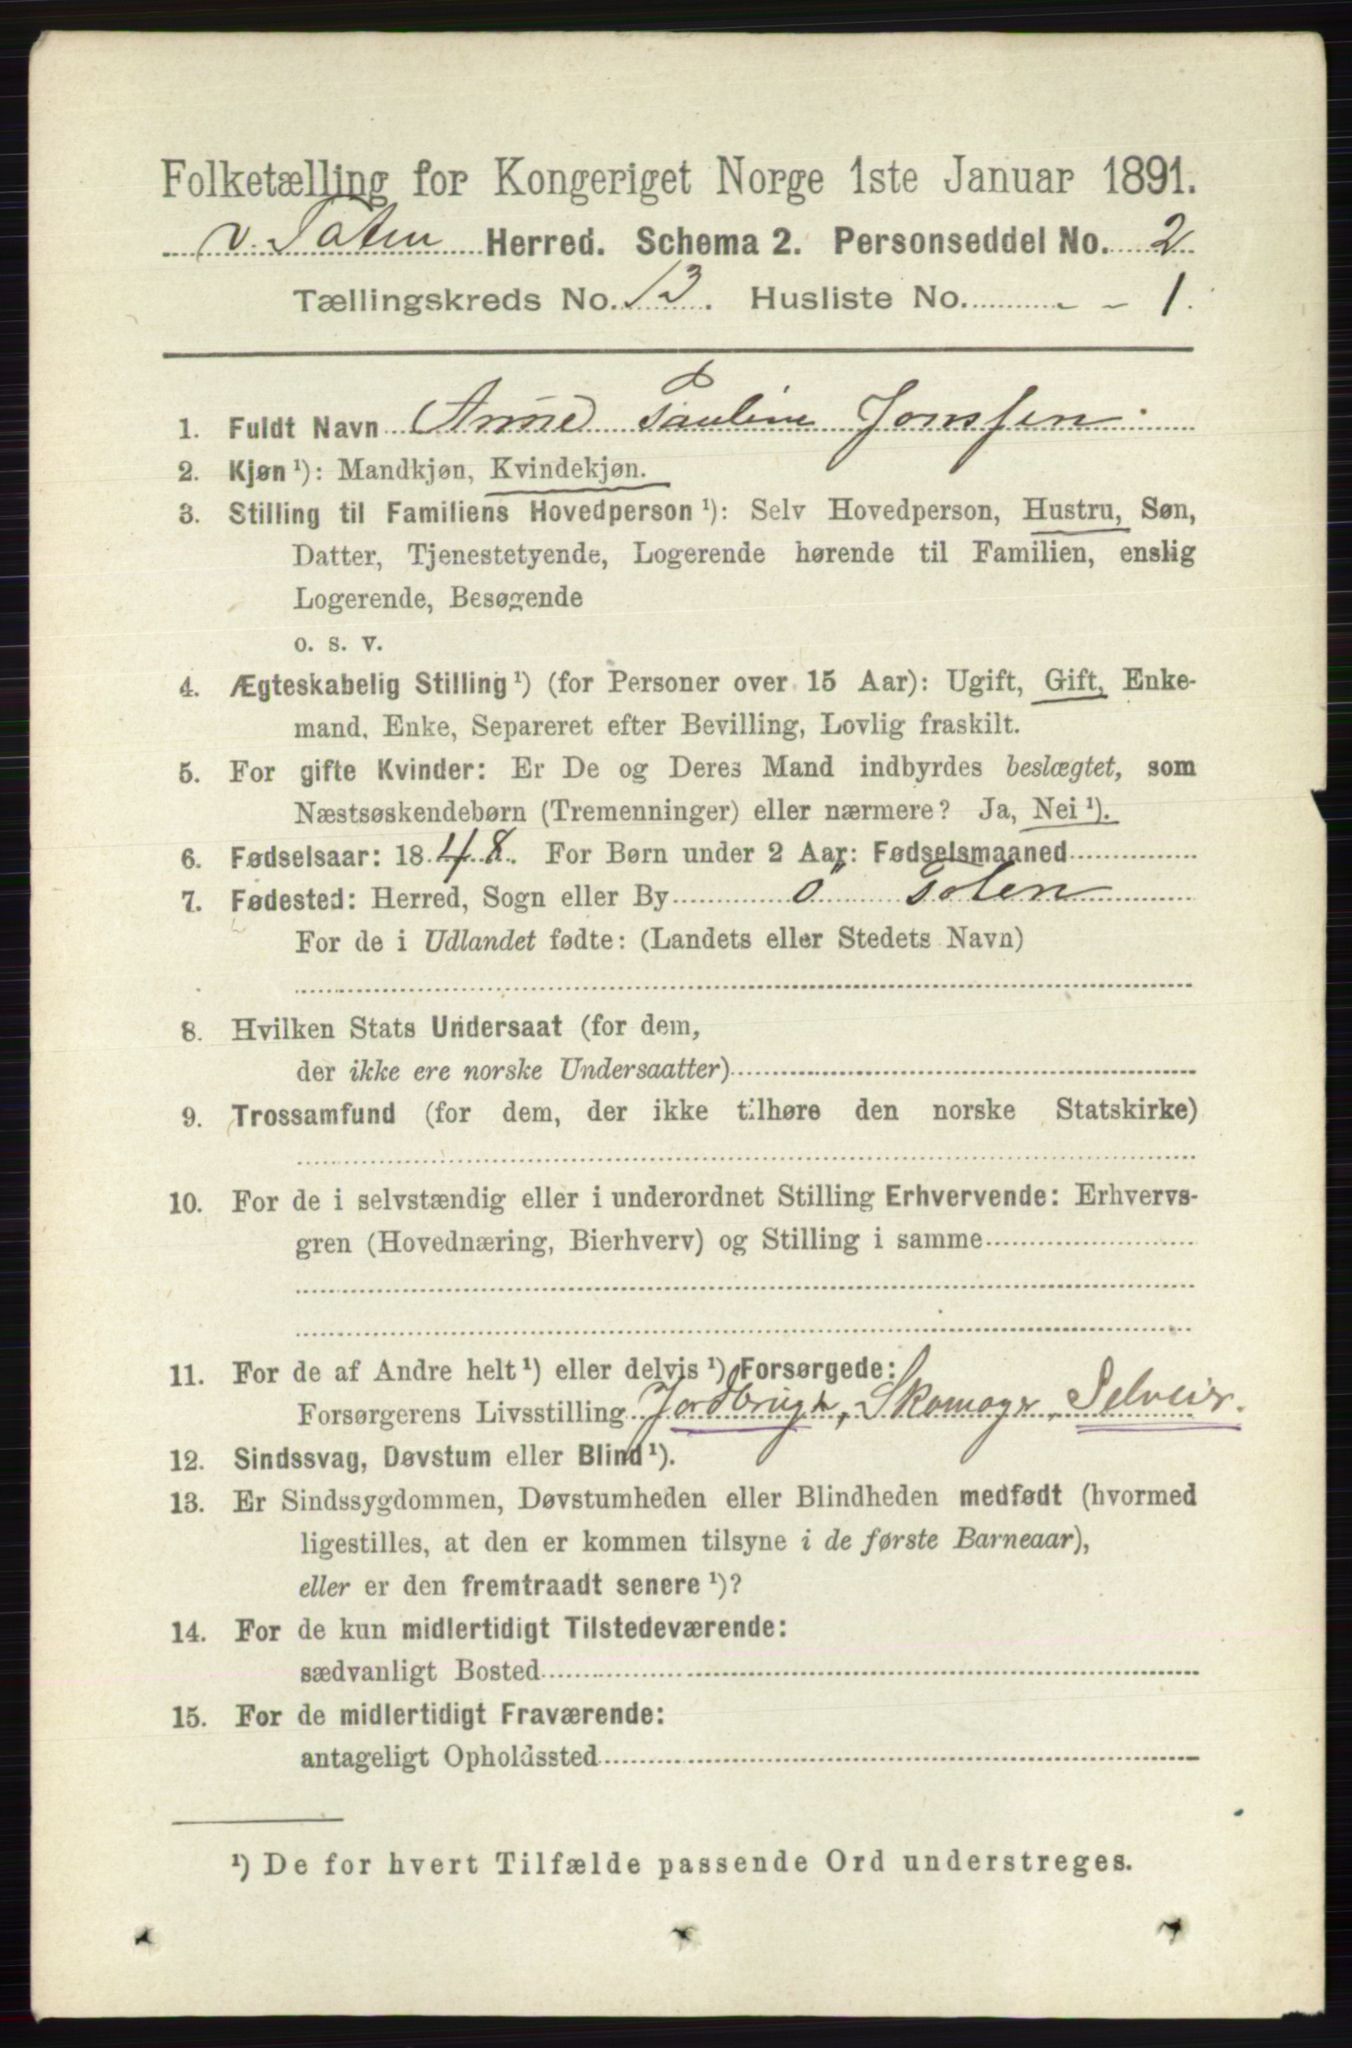 Folketælling for Kongeriget Norge 1ste Januar 1891.
v. Toten Herred. Schema 2. Personseddel No. 2
Tællingskreds No. 13. Husliste No. - - 1.
1. Fuldt Navn Anne Pauline Jonssen
2. Kjøn ¹): Mandkjøn, Kvindekjøn.
3. Stilling til Familiens Hovedperson ¹): Selv Hovedperson, Hustru, Søn,
Datter, Tjenestetyende, Logerende hørende til Familien, enslig
Logerende, Besøgende
o. s. v.
4. Ægteskabelig Stilling ¹) (for Personer over 15 Aar): Ugift, Gift, Enke-
mand, Enke, Separeret efter Bevilling, Lovlig fraskilt.
5. For gifte Kvinder: Er De og Deres Mand indbyrdes beslægtet, som
Næstsøskendebørn (Tremenninger) eller nærmere? Ja, Nei ¹).
6. Fødselsaar: 1848. For Børn under 2 Aar: Fødselsmaaned
7. Fødested: Herred, Sogn eller By ö Toten
For de i Udlandet fødte: (Landets eller Stedets Navn)
8. Hvilken Stats Undersaat (for dem,
der ikke ere norske Undersaatter)
9. Trossamfund (for dem, der ikke tilhøre den norske Statskirke)
10. For de i selvstændig eller i underordnet Stilling Erhvervende: Erhvervs-
gren (Hovednæring, Bierhverv) og Stilling i samme
11. For de af Andre helt ¹) eller delvis ¹) Forsørgede:
Forsørgerens Livsstilling Jordbrug, Skomager, Selveier.
12. Sindssvag, Døvstum eller Blind ¹).
13. Er Sindssygdommen, Døvstumheden eller Blindheden medfødt (hvormed
ligestilles, at den er kommen tilsyne i de første Barneaar),
eller er den fremtraadt senere ¹)?
14. For de kun midlertidigt Tilstedeværende:
sædvanligt Bosted
15. For de midlertidigt Fraværende:
antageligt Opholdssted
¹) De for hvert Tilfælde passende Ord understreges.